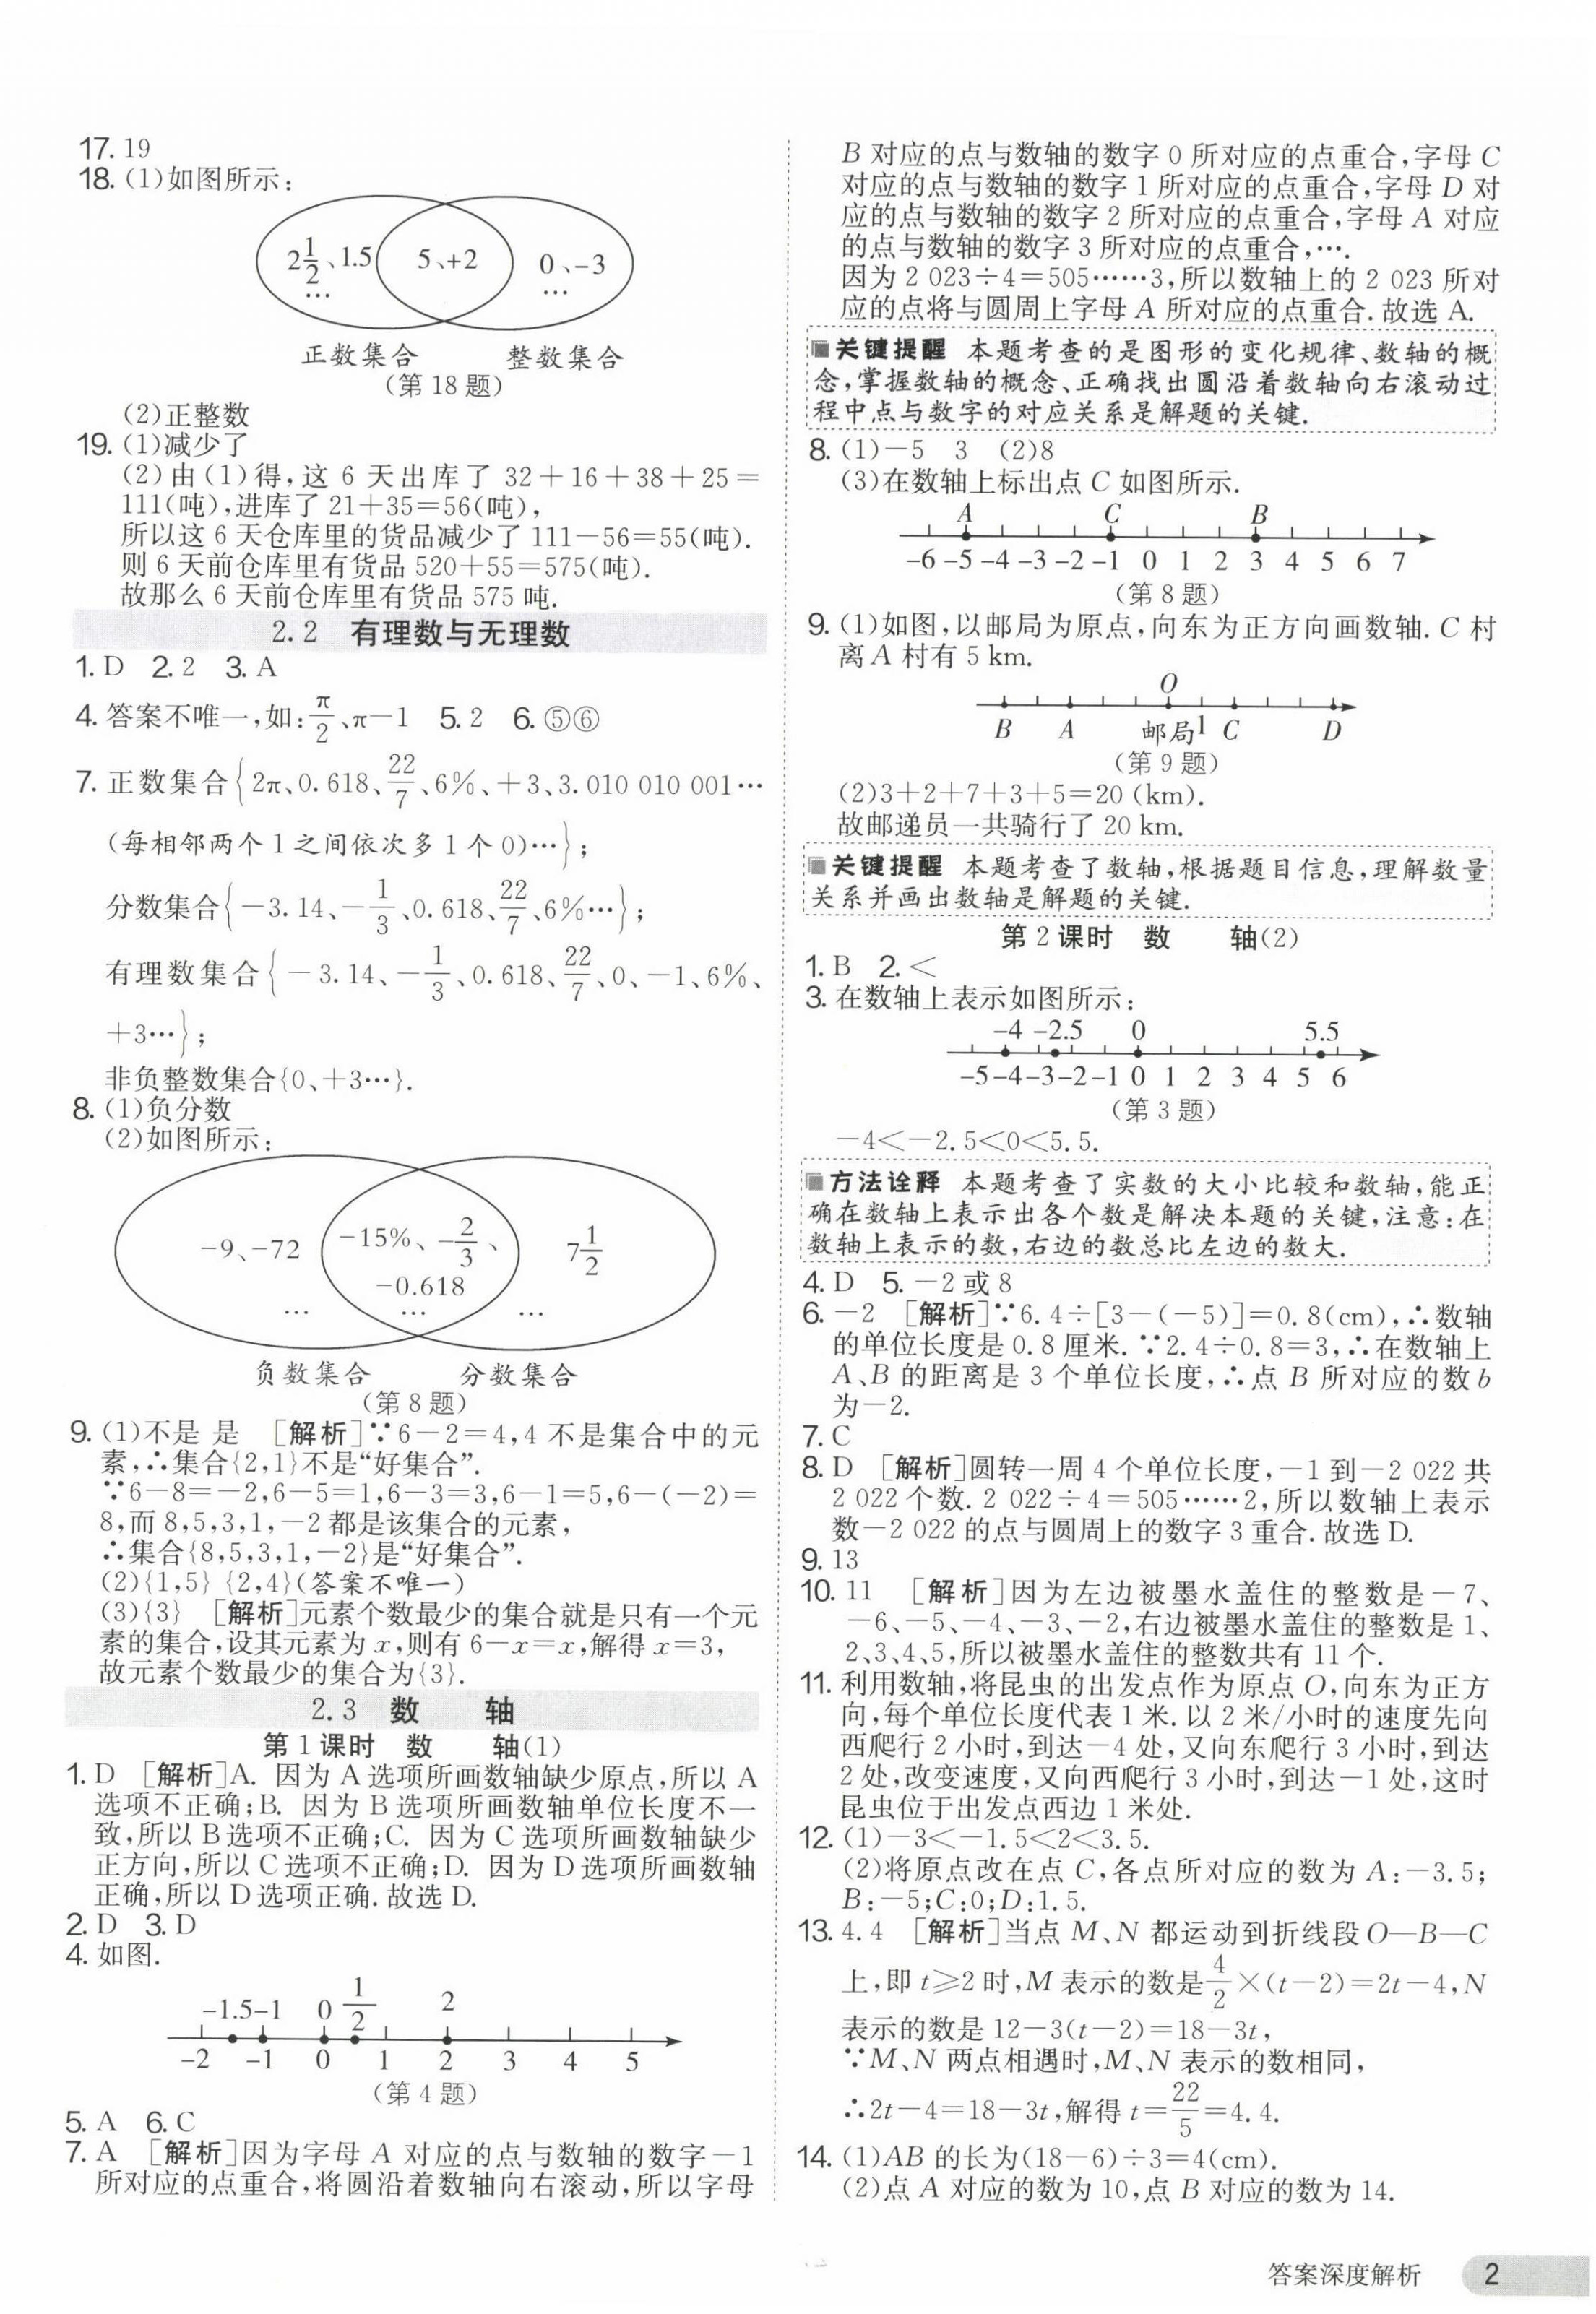 17. 19
18. (1)如图所示:
2 1/2、1.5 5、+2 0、-3
… …
正数集合 整数集合
(第 18 题)
(2)正整数
19. (1)减少了
(2)由(1)得,这 6 天出库了 32+16+38+25=
111(吨),进库了 21+35=56(吨),
所以这 6 天仓库里的货品减少了 111-56=55(吨).
则 6 天前仓库里有货品 520+55=575(吨).
故那么 6 天前仓库里有货品 575 吨.
2.2 有理数与无理数
1. D 2. 2 3. A
4. 答案不唯一,如:π/2、π-1 5. 2 6. ⑤⑥
7. 正数集合{2π、0.618、22/7、6%、+3、3.010 010 001…
(每相邻两个 1 之间依次多 1 个 0)…};
分数集合{-3.14、-1/3、0.618、22/7、6%…};
有理数集合{-3.14、-1/3、0.618、22/7、0、-1、6%、
+3…};
非负整数集合{0、+3…}.
8. (1)负分数
(2)如图所示:
-9、-72 -15%、-2/3、 7 1/2
-0.618
… … …
负数集合 分数集合
(第 8 题)
9. (1)不是 是 [解析]∵6-2=4,4 不是集合中的元
素,∴集合{2,1}不是“好集合”.
∵6-8=-2,6-5=1,6-3=3,6-1=5,6-(-2)=
8,而 8,5,3,1,-2 都是该集合的元素,
∴集合{8,5,3,1,-2}是“好集合”.
(2){1,5} {2,4}(答案不唯一)
(3){3} [解析]元素个数最少的集合就是只有一个元
素的集合,设其元素为 x,则有 6-x=x,解得 x=3,
故元素个数最少的集合为{3}.
2.3 数 轴
第 1 课时 数 轴(1)
1. D [解析]A. 因为 A 选项所画数轴缺少原点,所以 A
选项不正确;B. 因为 B 选项所画数轴单位长度不一
致,所以 B 选项不正确;C. 因为 C 选项所画数轴缺少
正方向,所以 C 选项不正确;D. 因为 D 选项所画数轴
正确,所以 D 选项正确.故选 D.
2. D 3. D
4. 如图.
-1.5 -1 0 1/2 2
-2 -1 0 1 2 3 4 5
(第 4 题)
5. A 6. C
7. A [解析]因为字母 A 对应的点与数轴的数字-1
所对应的点重合,将圆沿着数轴向右滚动,所以字母
B 对应的点与数轴的数字 0 所对应的点重合,字母 C
对应的点与数轴的数字 1 所对应的点重合,字母 D 对
应的点与数轴的数字 2 所对应的点重合,字母 A 对应
的点与数轴的数字 3 所对应的点重合,….
因为 2 023÷4=505……3,所以数轴上的 2 023 所对
应的点将与圆周上字母 A 所对应的点重合.故选 A.
关键提醒 本题考查的是图形的变化规律、数轴的概
念,掌握数轴的概念、正确找出圆沿着数轴向右滚动过
程中点与数字的对应关系是解题的关键.
8. (1)-5 3 (2)8
(3)在数轴上标出点 C 如图所示.
A C B
-6 -5 -4 -3 -2 -1 0 1 2 3 4 5 6 7
(第 8 题)
9. (1)如图,以邮局为原点,向东为正方向画数轴. C 村
离 A 村有 5 km.
O
B A 邮局 1 C D
(第 9 题)
(2)3+2+7+3+5=20 (km).
故邮递员一共骑行了 20 km.
关键提醒 本题考查了数轴,根据题目信息,理解数量
关系并画出数轴是解题的关键.
第 2 课时 数 轴(2)
1. B 2. <
3. 在数轴上表示如图所示:
-4 -2.5 0 5.5
-5 -4 -3 -2 -1 0 1 2 3 4 5 6
(第 3 题)
-4<-2.5<0<5.5.
方法诠释 本题考查了实数的大小比较和数轴,能正
确在数轴上表示出各个数是解决本题的关键,注意:在
数轴上表示的数,右边的数总比左边的数大.
4. D 5. -2 或 8
6. -2 [解析]∵6.4÷[3-(-5)]=0.8(cm),∴数轴
的单位长度是 0.8 厘米.∵2.4÷0.8=3,∴在数轴上
A、B 的距离是 3 个单位长度,∴点 B 所对应的数 b
为-2.
7. C
8. D [解析]圆转一周 4 个单位长度,-1 到-2 022 共
2 022 个数. 2 022÷4=505……2,所以数轴上表示
数-2 022 的点与圆周上的数字 3 重合.故选 D.
9. 13
10. 11 [解析]因为左边被墨水盖住的整数是-7、
-6、-5、-4、-3、-2,右边被墨水盖住的整数是 1、
2、3、4、5,所以被墨水盖住的整数共有 11 个.
11. 利用数轴,将昆虫的出发点作为原点 O,向东为正方
向,每个单位长度代表 1 米.以 2 米/小时的速度先向
西爬行 2 小时,到达-4 处,又向东爬行 3 小时,到达
2 处,改变速度,又向西爬行 3 小时,到达-1 处,这时
昆虫位于出发点西边 1 米处.
12. (1)-3<-1.5<2<3.5.
(2)将原点改在点 C,各点所对应的数为 A:-3.5;
B:-5;C:0;D:1.5.
13. 4.4 [解析]当点 M、N 都运动到折线段 O—B—C
上,即 t≥2 时,M 表示的数是 4/2×(t-2)=2t-4,N
表示的数是 12-3(t-2)=18-3t,
∵M、N 两点相遇时,M、N 表示的数相同,
∴2t-4=18-3t,解得 t=22/5=4.4.
14. (1)AB 的长为(18-6)÷3=4(cm).
(2)点 A 对应的数为 10,点 B 对应的数为 14.
答案深度解析 2